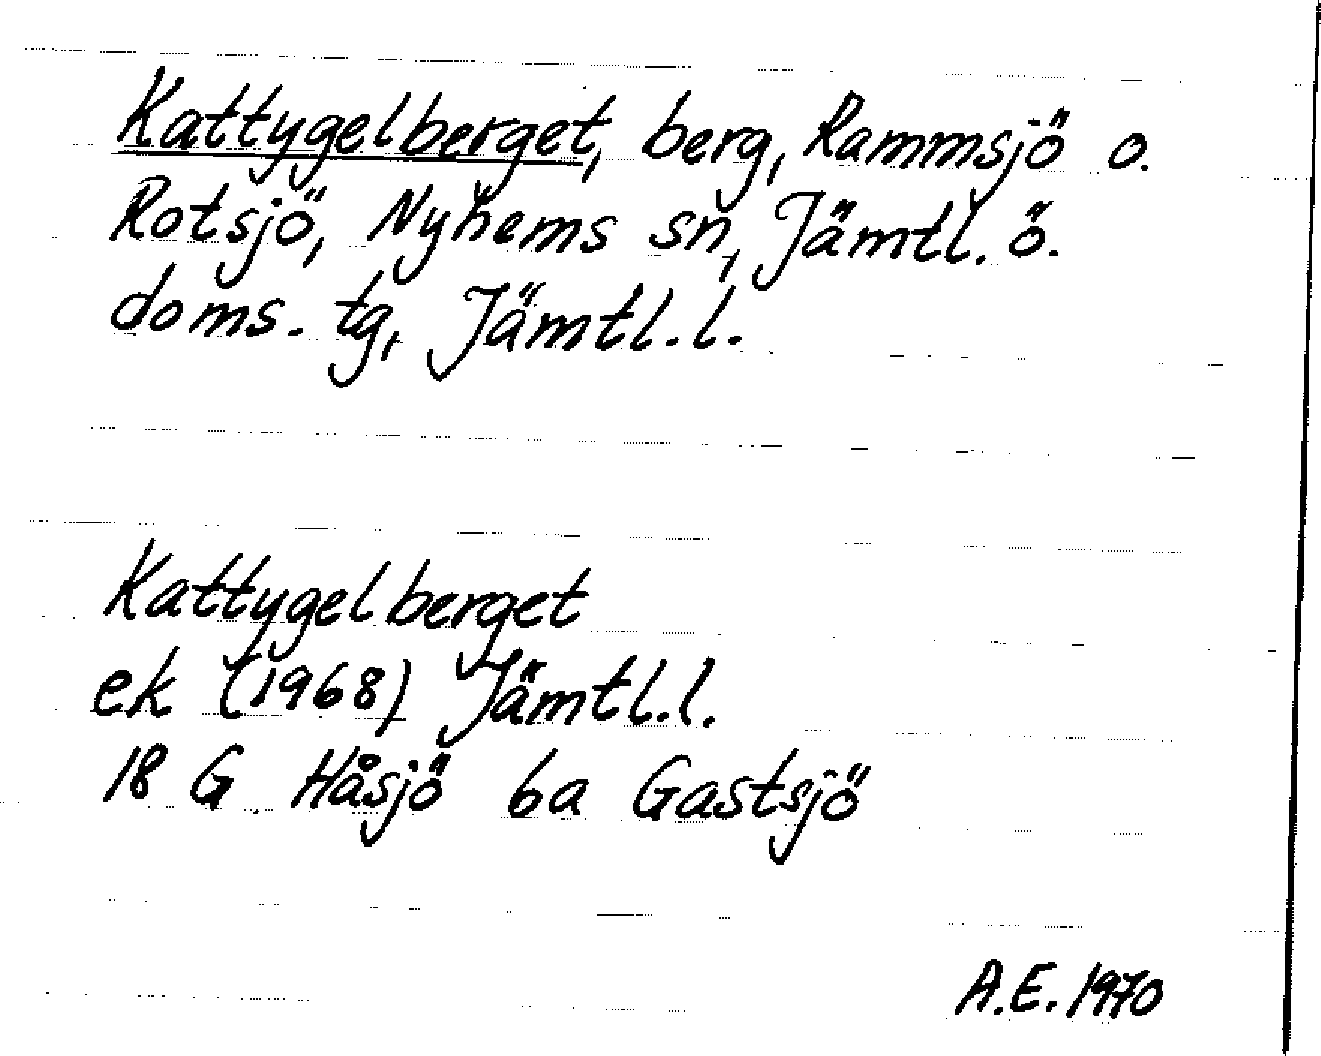 Kattygelberget, berg, Rammsjö o.
Rotsjö, Nyhems sn, Jämtl. ö.
doms. tg, Jämtl. l.
Kattygelberget
ek (1968) Jämtl. l.
18 G Håsjö 6a Gastsjö
A.E. 1970